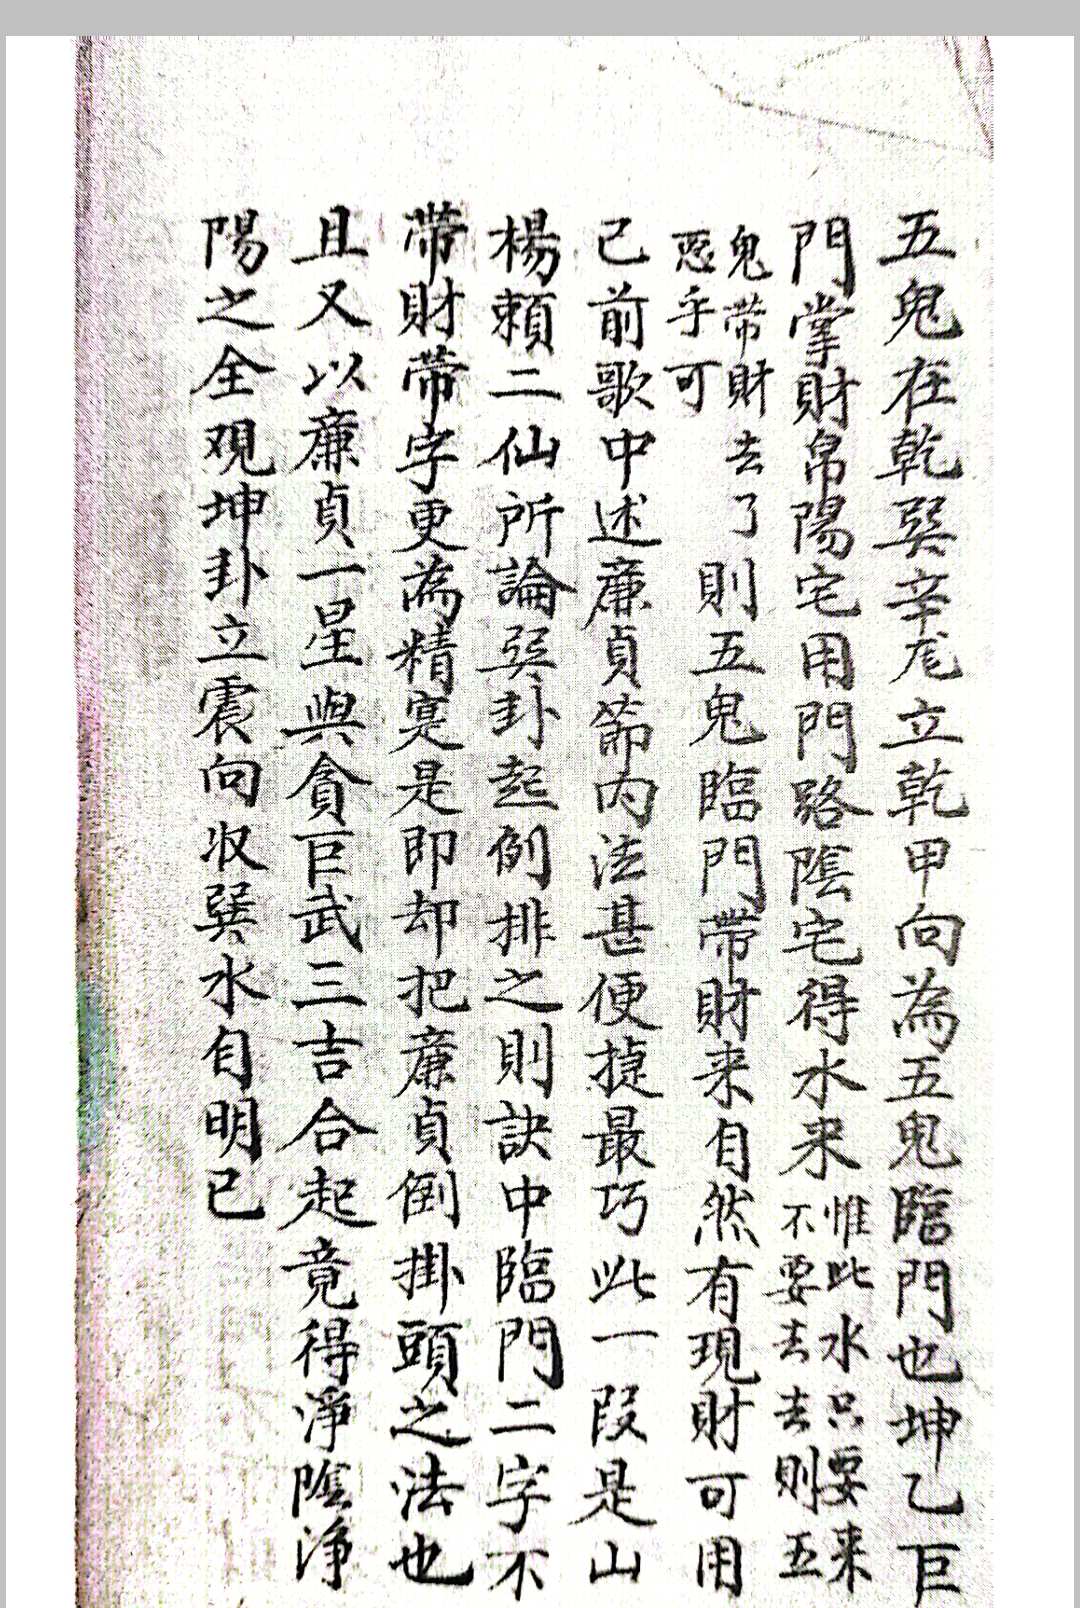 五鬼在乾巽辛尨立乾甲向為五鬼臨門也坤乙巨
門掌財帛陽宅用門路陰宅得水来惟此水只要来不要去去則五
鬼帶財去了惡乎可則五鬼臨門帶財来自然有現財可用
已前歌中述廉貞節内法甚便㨗最巧此一段是山
楊頼二仙所論巽卦起例排之則訣中臨門二字不
帶財帶字更為精寔是即却把廉貞倒掛頭之法也
且又以廉貞一星與貪巨武三吉合起竟得淨陰淨
陽之全观坤卦立震向收巽水自明已